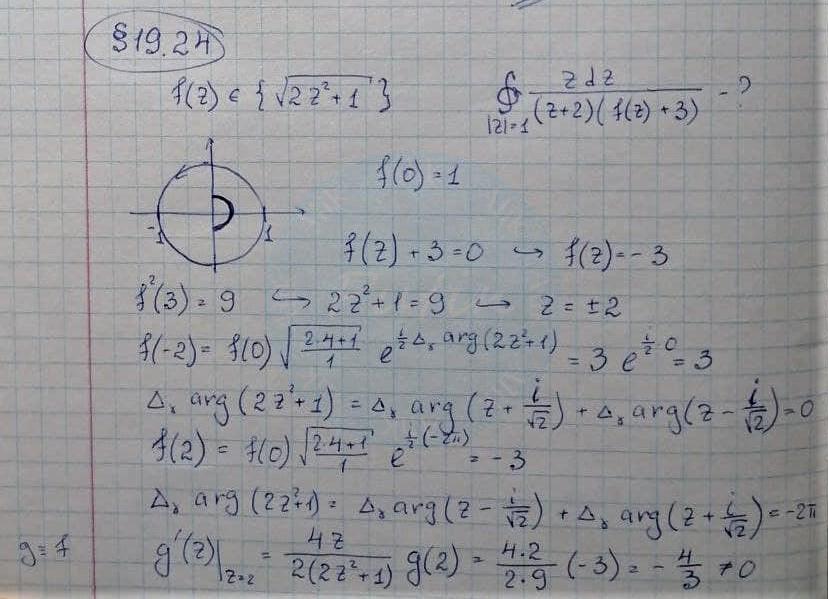 §19.24
f(z) ∈ {√(2z²+1)}   ∮_{|z|=1} z dz / ((z+2)(f(z)+3)) - ?
f(0) = 1
-1 1
f(z) + 3 = 0 ↪ f(z) = - 3
f²(3) = 9 ↪ 2z²+1 = 9 ↪ z = ±2
f(-2) = f(0) √((2·4+1)/1) e^{(i/2) Δ_γ arg(2z²+1)} = 3 e^{(i/2)·0} = 3
Δ_γ arg(2z²+1) = Δ_γ arg(z + i/√2) + Δ_γ arg(z - i/√2) = 0
f(2) = f(0) √((2·4+1)/1) e^{(i/2)(-2π)} = -3
Δ_γ arg(2z²+1) = Δ_γ arg(z - i/√2) + Δ_γ arg(z + i/√2) = -2π
g ≡ f   g'(z)|_{z=2} = 4z / (2(2z²+1)) g(2) = (4·2)/(2·9) (-3) = - 4/3 ≠ 0